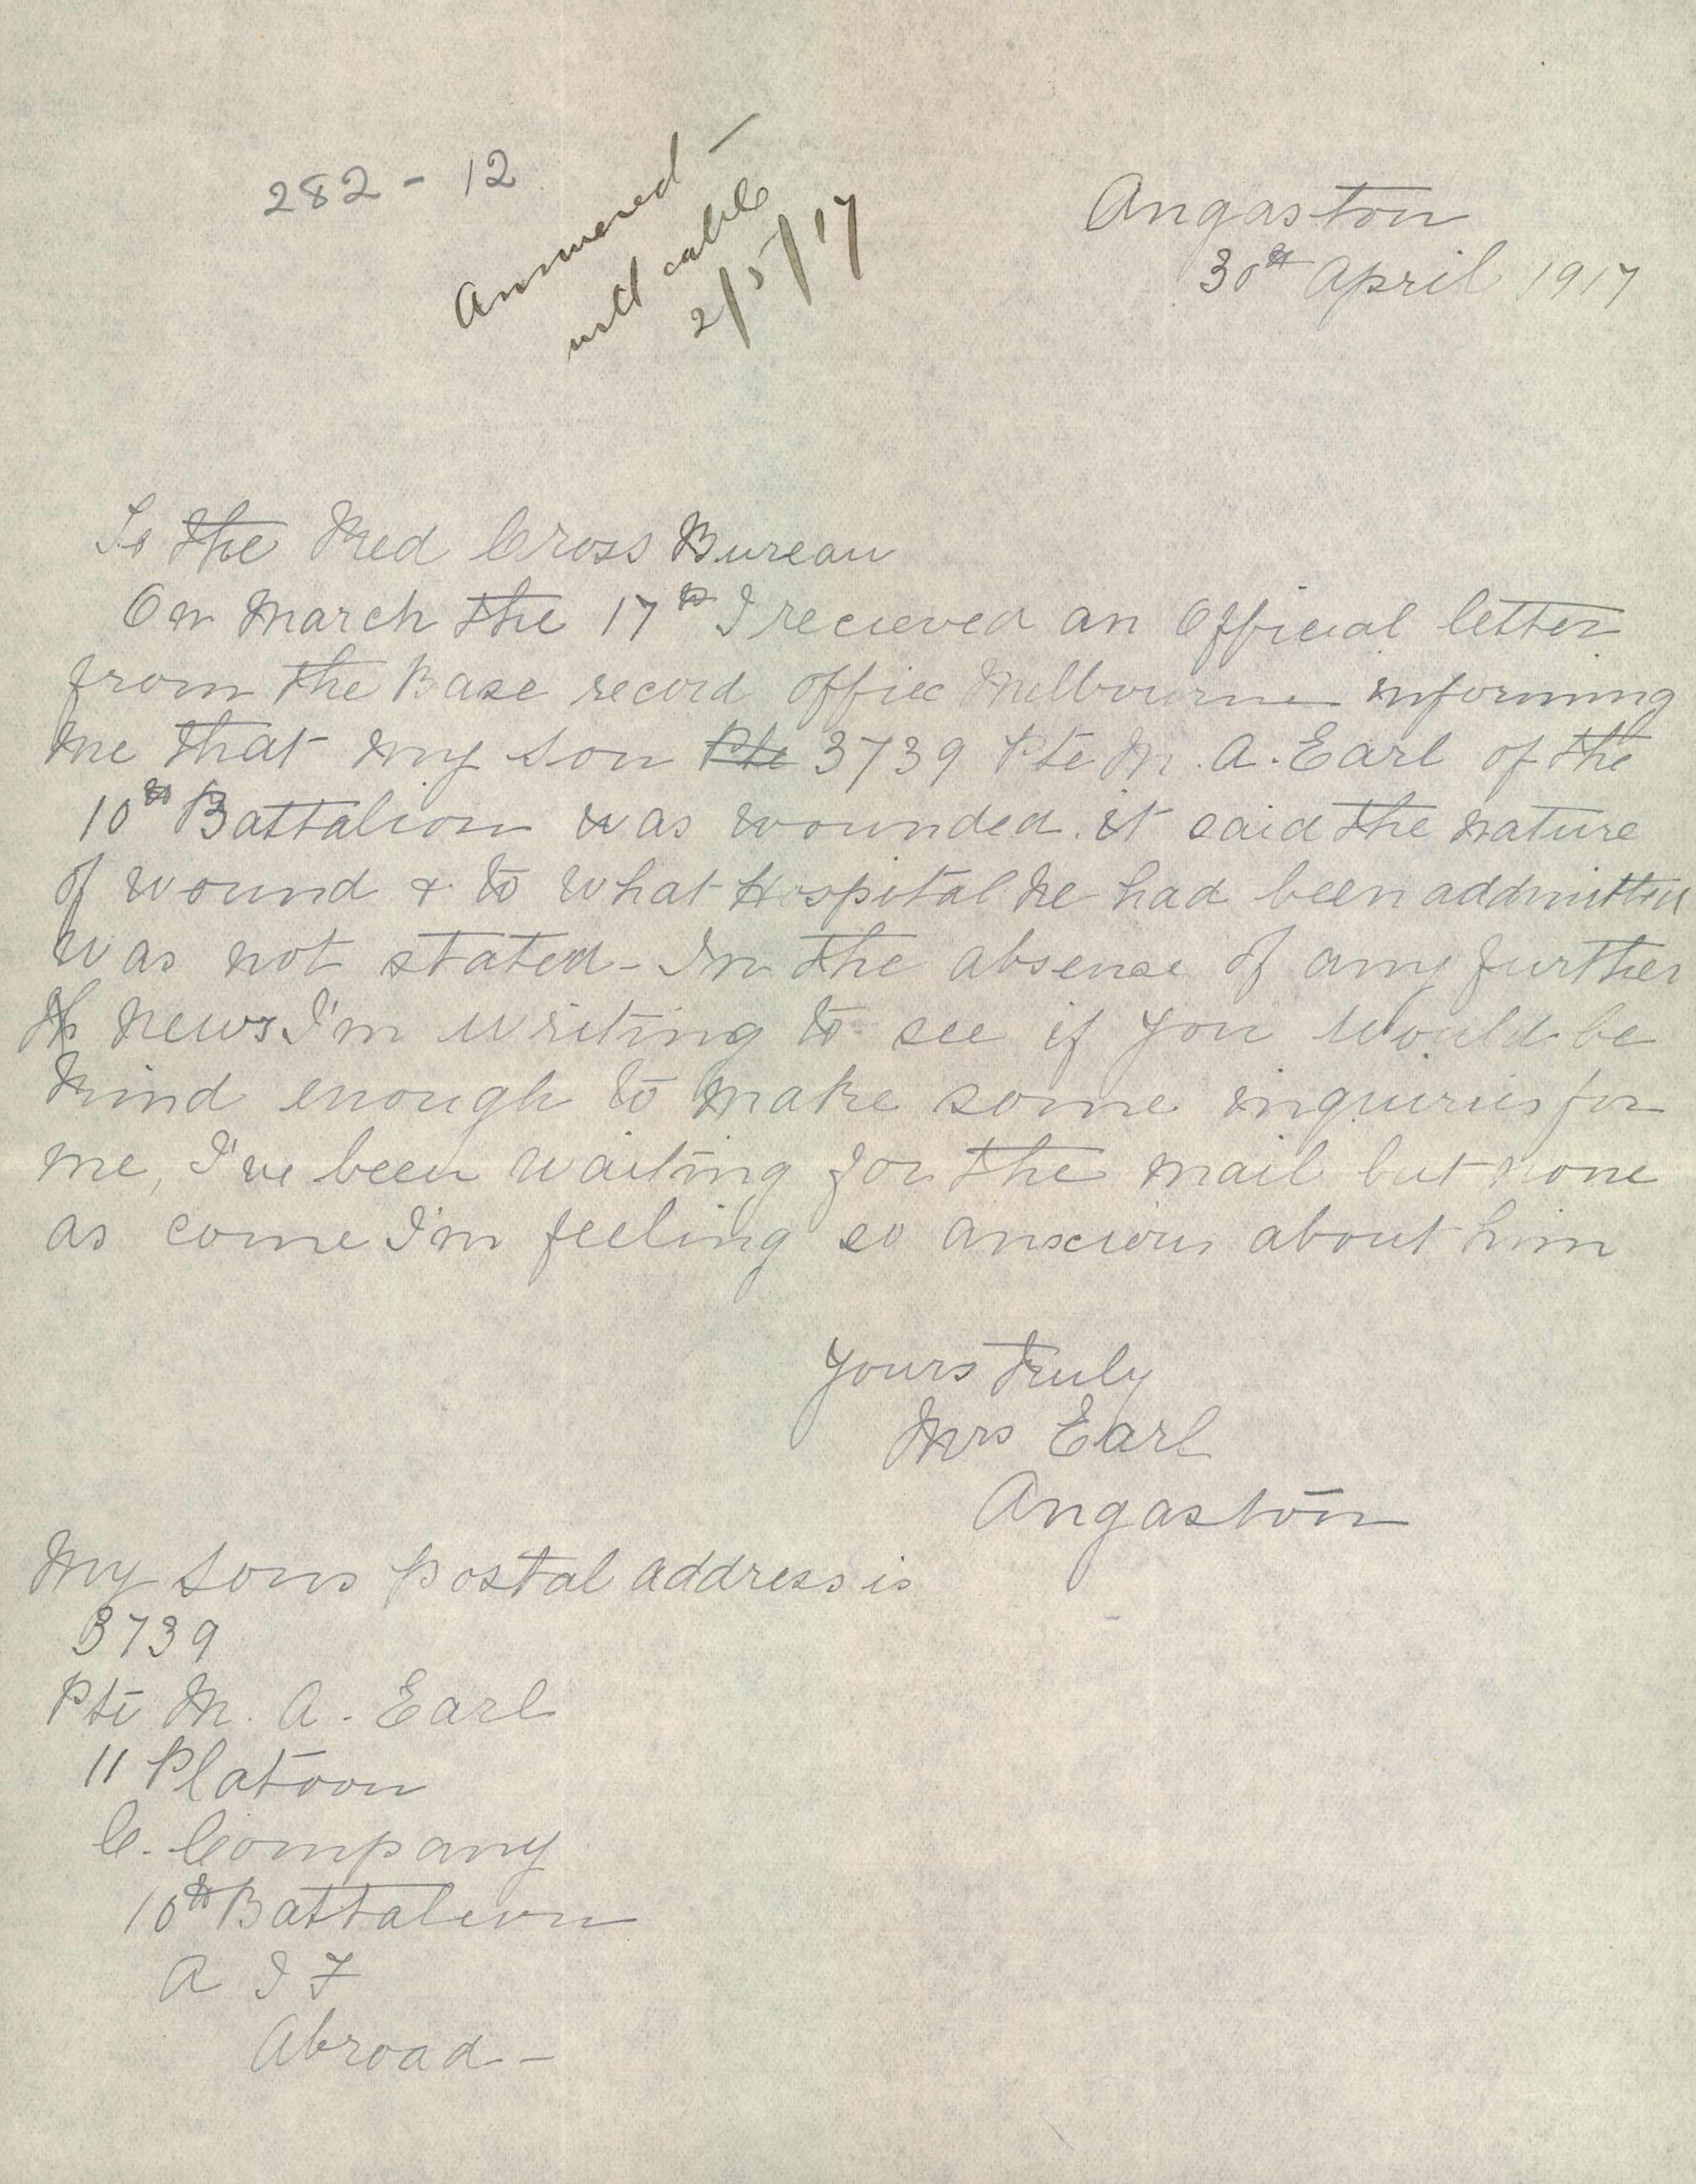 282 - 12
Answered -
will cable
2/5/17
Angaston
30th April 1917
To the Red Cross Bureau
On March the 17th I recieved an Official letter
from the Base record office Melbourne informing
me that my son Pte 3739 Pte M. A. Earl of the
10th Battalion was wounded. it said the nature
of wound & to what Hospital he had been addmitted
was not stated - In the absense of any further
news I'm writing to see if you would be
kind enough to make some inquiries for
me, I've been waiting for the mail but none
as come I'm feeling so anxious about him
Yours truly
Mrs Earl
Angaston
My sons postal address is
3739
Pte M. A. Earl
11 Platoon
C. Company
10th Battalion
A I F
Abroad -